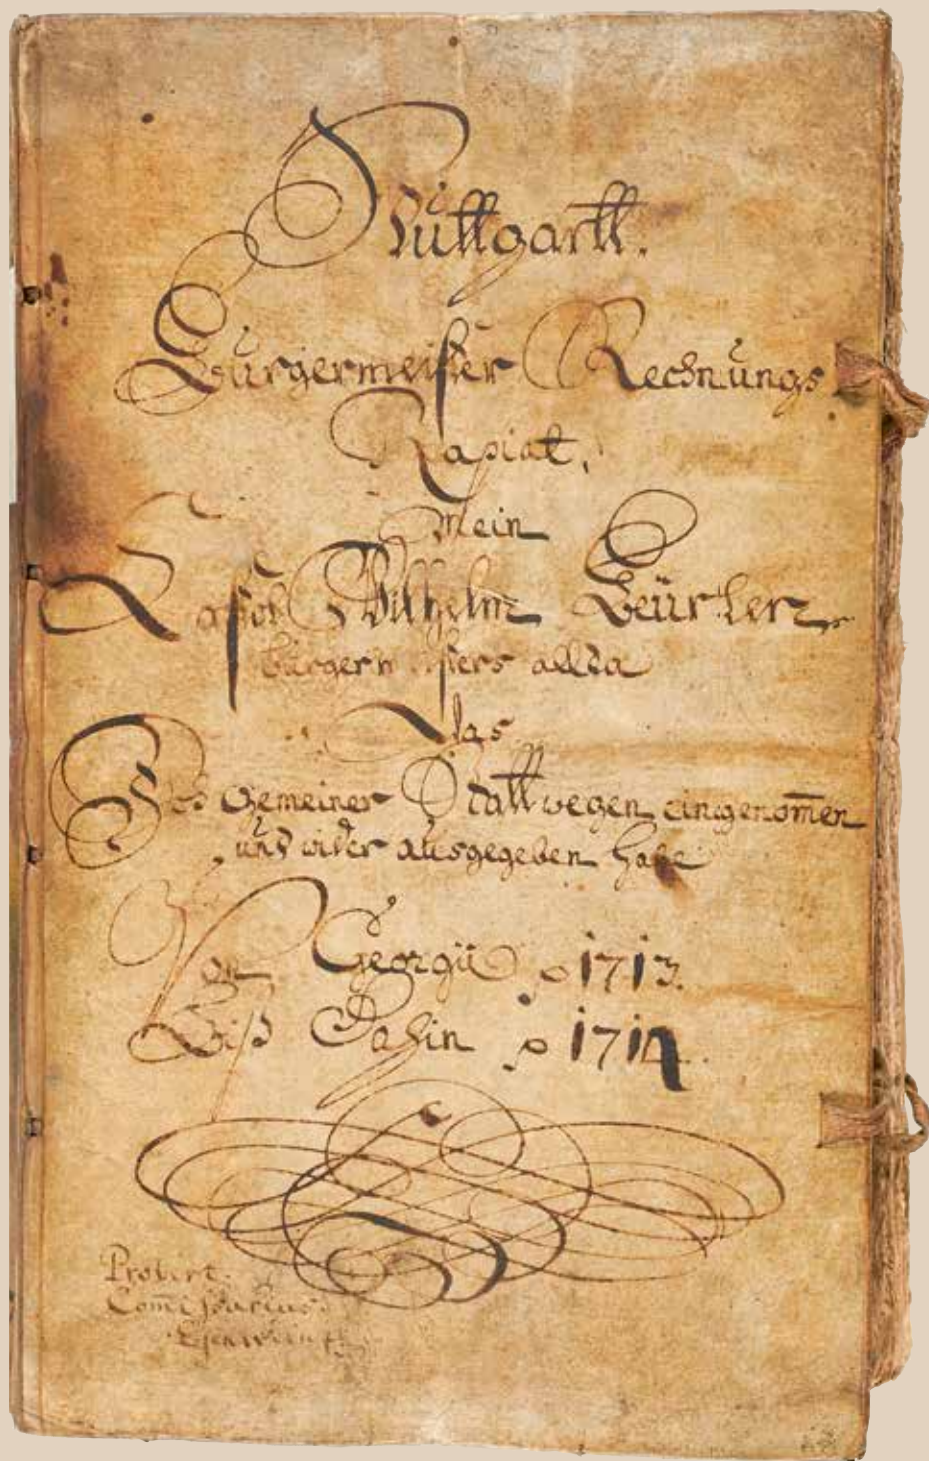 Stuttgartt.
Burgermeister Rechnungs
Rapiat,
Mein
Jacob Wilhelm
burgermeisters allda
Das
Jch Gemeiner Statt wegen eingenom̄en
und wider ausgegeben habe
Von Georgii ao 1713.
Biß Dahin ao 1714.
Probirt.
Com̄issarius